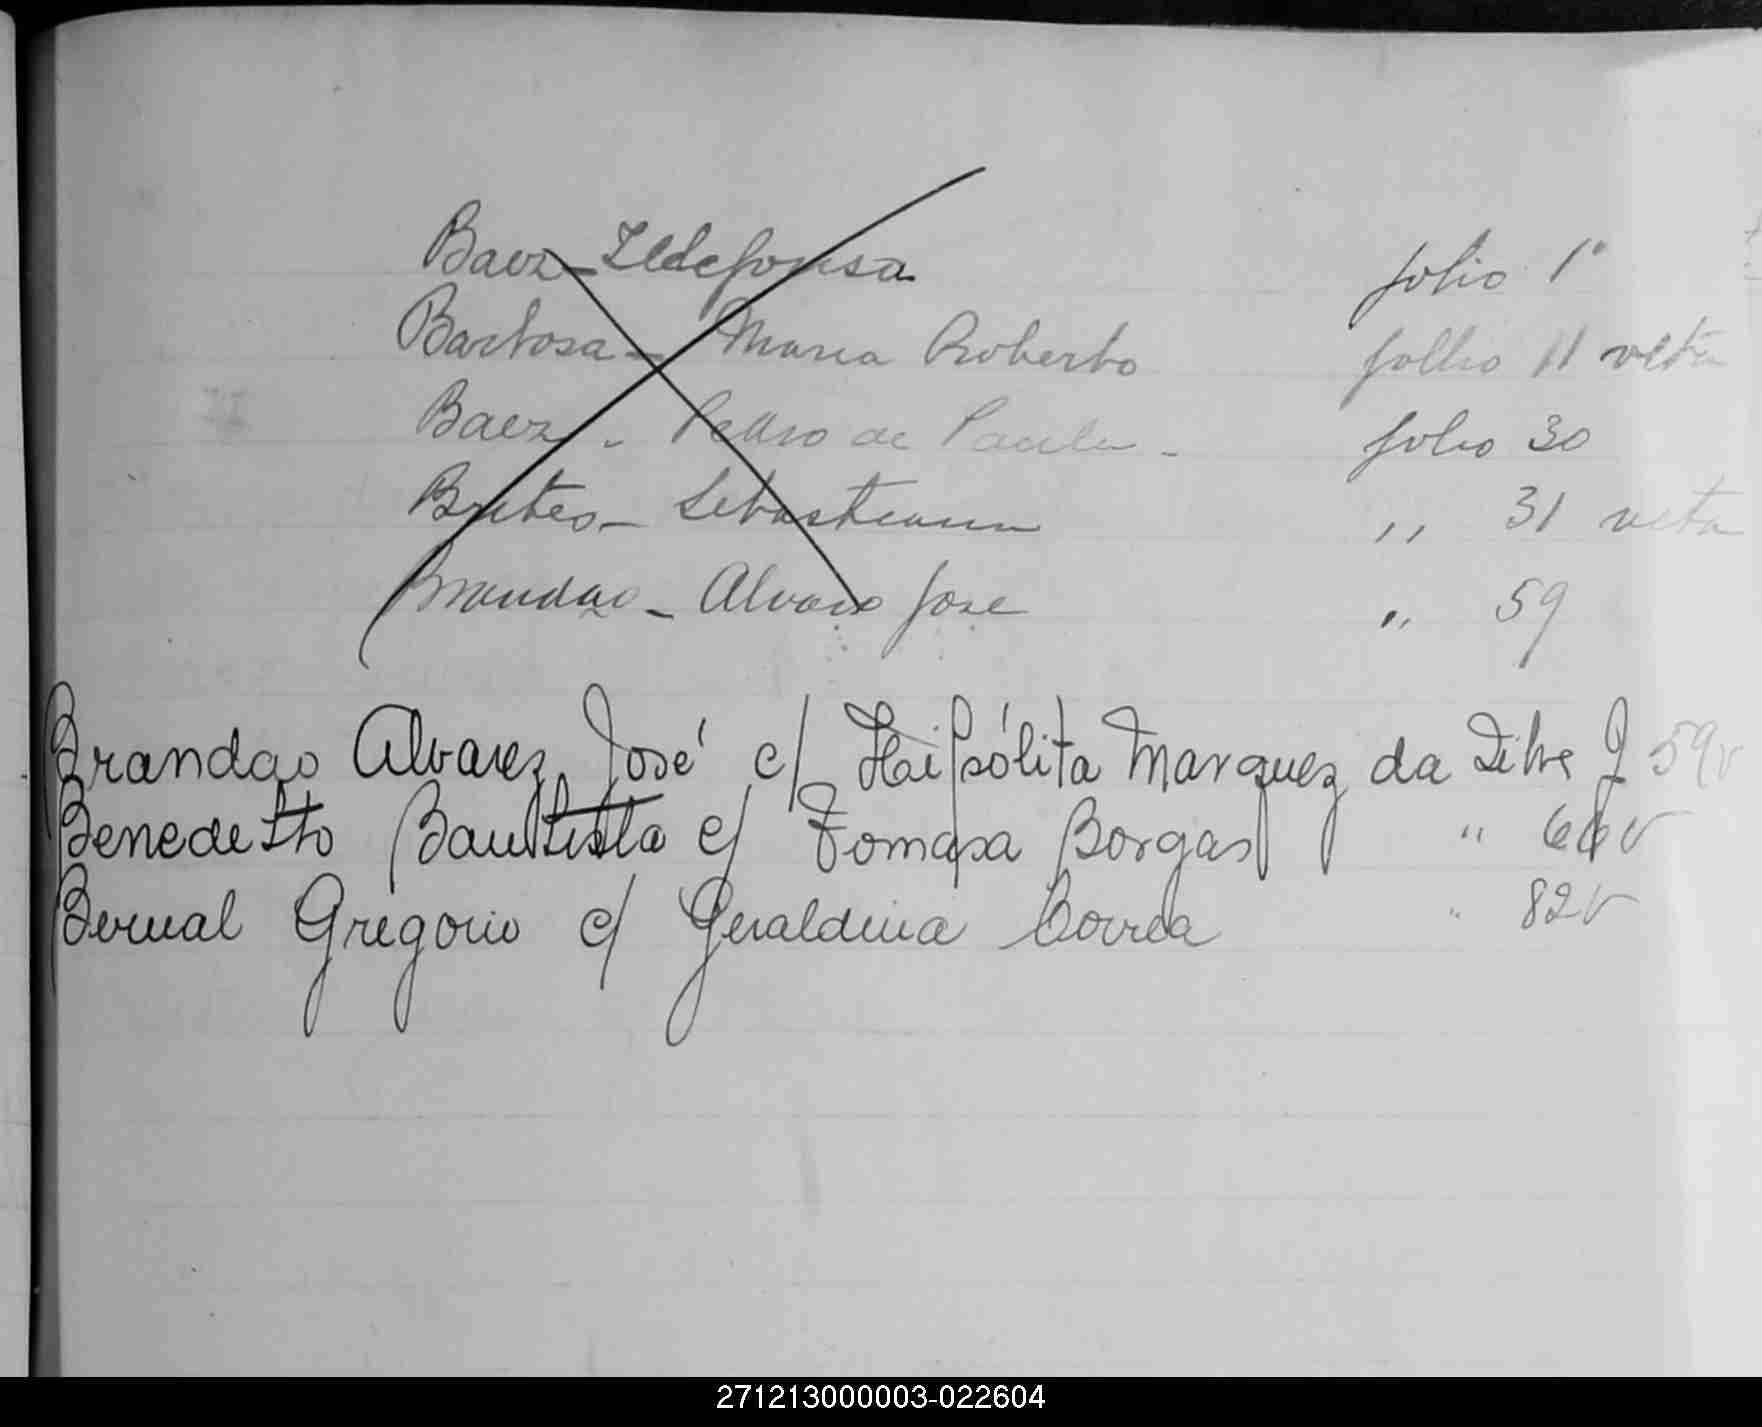 Baez - Ildefonsa folio 1°
Barbosa - Maria Roberto follio 11 velta
Baez - Pedro de Paula - folio 30
Brites - Sebastiana ,, 31 velta
Brandao - Alvaro Jose ,, 59
Brandao Alvarez José c/ Haipólita Marquez da Silve F 59v
Benedetto Bautista c/ Tomasa Borgas " 66v
Bernal Gregorio c/ Geraldina Correa " 82v
271213000003-022604